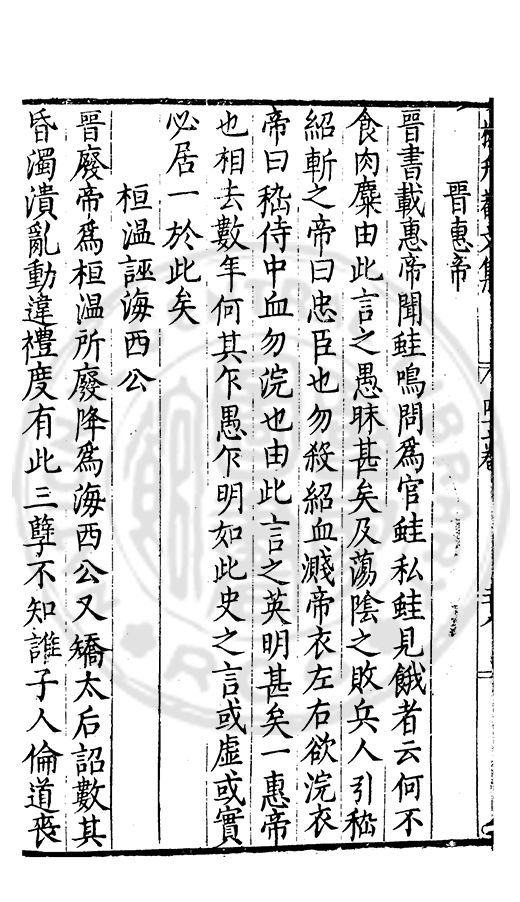 晉惠帝
晉書載惠帝聞蛙鳴問爲官蛙私蛙見餓者云何不
食肉糜由此言之愚昧甚矣及蕩陰之敗兵人引嵇
紹斬之帝曰忠臣也勿殺紹血濺帝衣左右欲浣衣
帝曰嵇侍中血勿浣也由此言之英明甚矣一惠帝
也相去數年何其乍愚乍明如此史之言或虛或實
必居一於此矣
桓溫誣海西公
晉廢帝爲桓溫所廢降爲海西公又矯太后詔數其
昏濁潰亂動違禮度有此三孽不知誰子人倫道喪